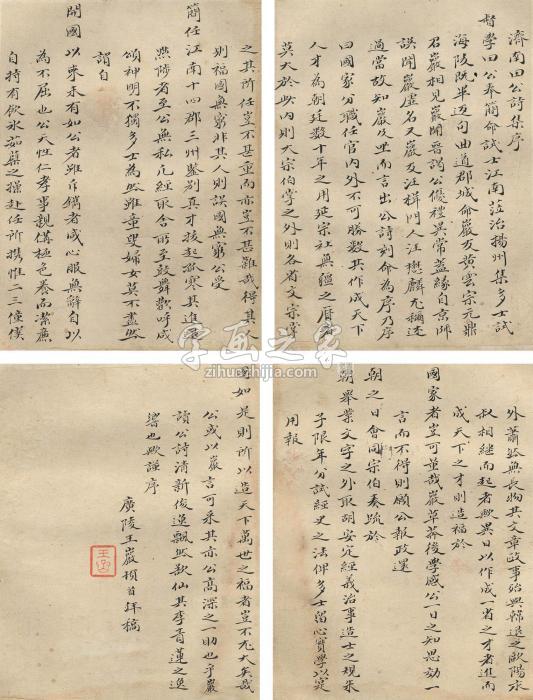 濟南田公詩集序
督學田公奉簡命試士江南蒞治揚州集多士試
海陵既畢迺句曲道郡城命巖友黃雲宗元鼎
召巖相見巖聞晉謁公優禮異常蓋緣自京師
誤聞巖虛名又巖友汪楫門人汪懋麟尤稱述
過當故知巖及坐而言出公詩刻命為序乃序
曰國家分職任官內外不可勝數其作成天下
人才為朝廷數十年之用延宗社無疆之曆者
莫大於此內則大宗伯掌之外則各省文宗掌
之其所任豈不甚重而亦豈不甚難哉得其人
則福國無窮非其人則誤國無窮公受
簡任江南十四郡三州鑒別真才拔起孤寒其進退
黜陟者至公無私凡經取舍所至鼓舞歡呼咸
頌神明不獨多士為然雖童叟婦女莫不盡然
謂自
開國以來未有如公者雖斥鐫者咸心服無辭自以
為不屈也公天性仁孝事親備極色養而潔廉
自持有飲冰茹蘗之操赴任所攜惟二三僮僕
外蕭然無長物其文章政事殆與韓退之歐陽永
叔相繼而起者歟異日以作成一省之才者進而
成天下之才則造福於
國家者豈可量哉巖草莽後學感公一日之知思効一
言而不得則願公報政還
朝之日會同宗伯奏疏於
朝舉業文字之外取胡安定經義治事造士之規朱
子限年分試經史之法俾多士留心實學以定
用報
國如是則所以造天下萬世之福者豈不尤大矣哉
公或以巖言可采其亦公高深之一助也乎巖
讀公詩清新俊逸飄然欲仙其李青蓮之逸
響也歟謹序
廣陵王巖頓首拜稿
字画之家
zihuazhijia.com